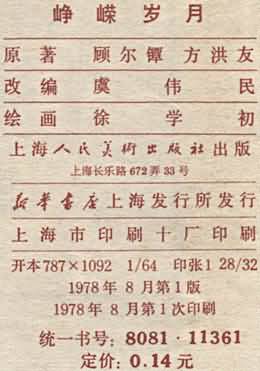 峥嵘岁月
原著 顾尔镡 方洪友
改编 虞伟民
绘画 徐学初
上海人民美术出版社出版
上海长乐路672弄33号
新华书店上海发行所发行
上海市印刷十厂印刷
开本787×1092 1/64 印张1 28/32
1978年8月第1版
1978年8月第1次印刷
统一书号：8081·11361
定价：0.14元